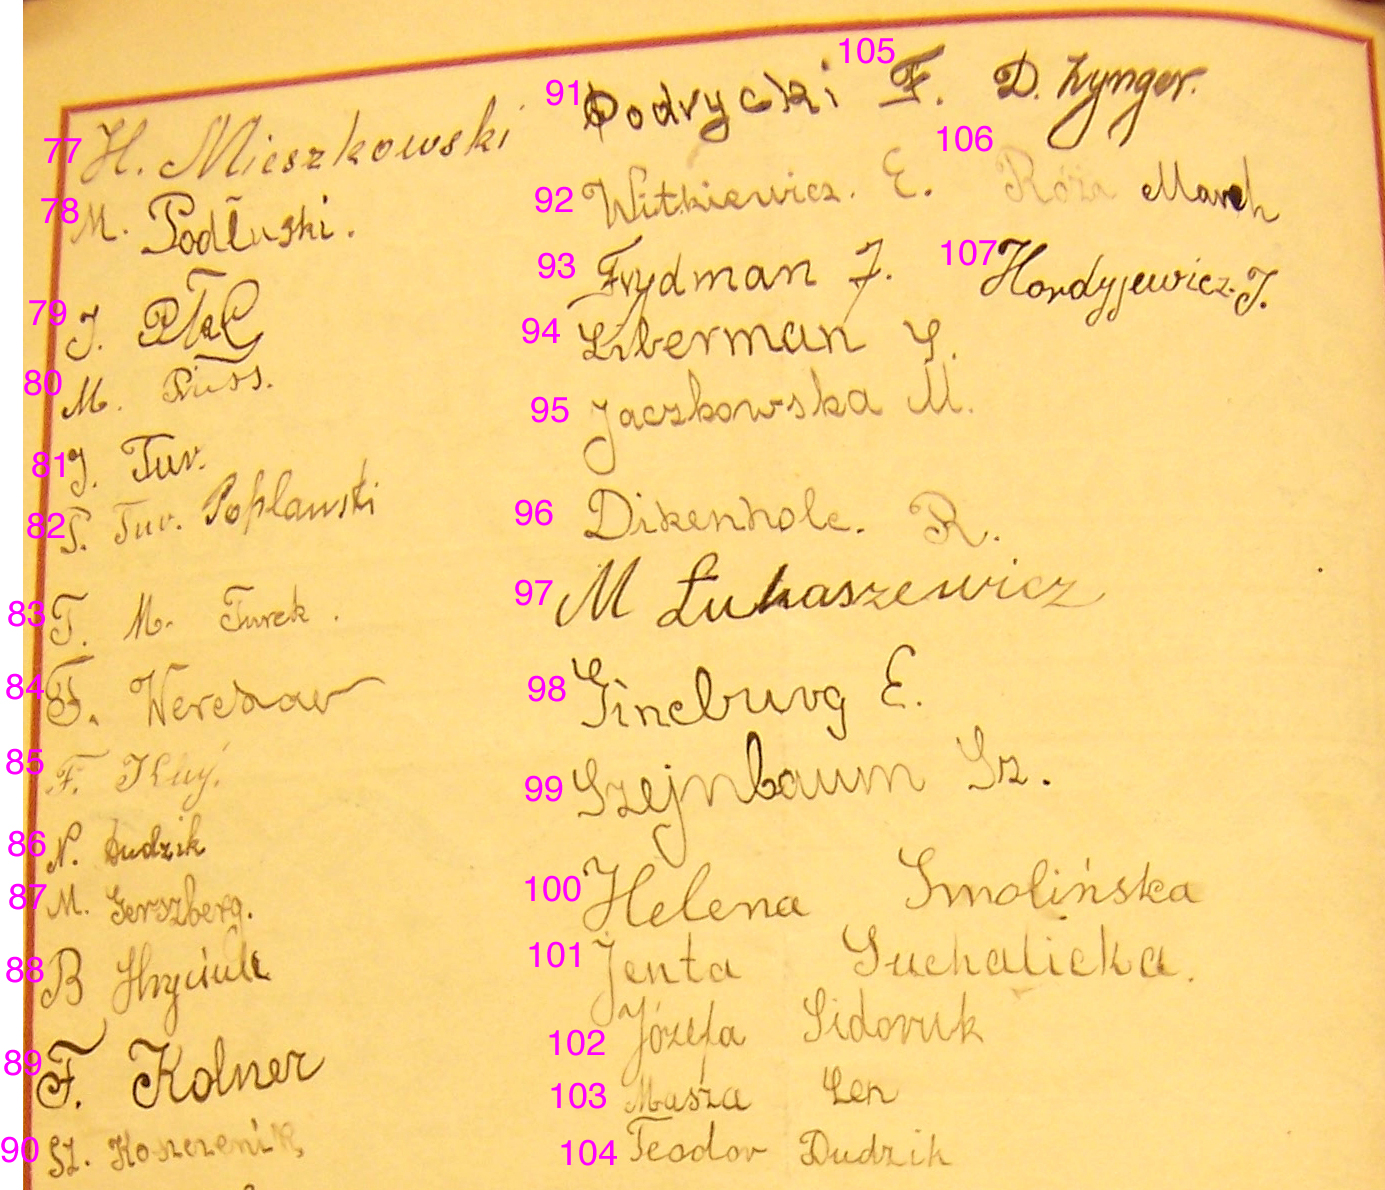 77 H. Mieszkowski
78 M. Podłuski.
79 J. Ptak
80 M. Priss.
81 J. Tur.
82 T. Tur. Poplawski
83 T. M. Turek.
84 F. Weresaw
85 F. Kuy.
86 N. Dudzik
87 M. Gerszberg.
88 B Hryciuk
89 F. Kolner
90 Sz. Koszczenik
91 Podrycki F.
92 Witkiewicz. E.
93 Frydman J.
94 Liberman S.
95 Jaczkowska M.
96 Dikenholc. R.
97 M Łukaszewicz
98 Gincburg E.
99 Szejnbaum Sz.
100 Helena Smolińska
101 Jenta Suchalicka.
102 Józefa Sidoruk
103 Masza Len
104 Teodor Dudzik
105 D. Zynger.
106 Róża March
107 Hordyjewicz J.